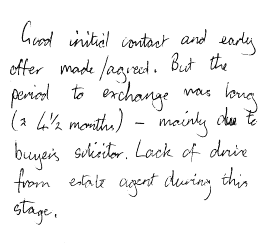 Good initial contact and early
offer made/agreed. But the
period to exchange was long
(≈ 4½ months) – mainly due to
buyers solicitor. Lack of drive
from estate agent during this
stage.